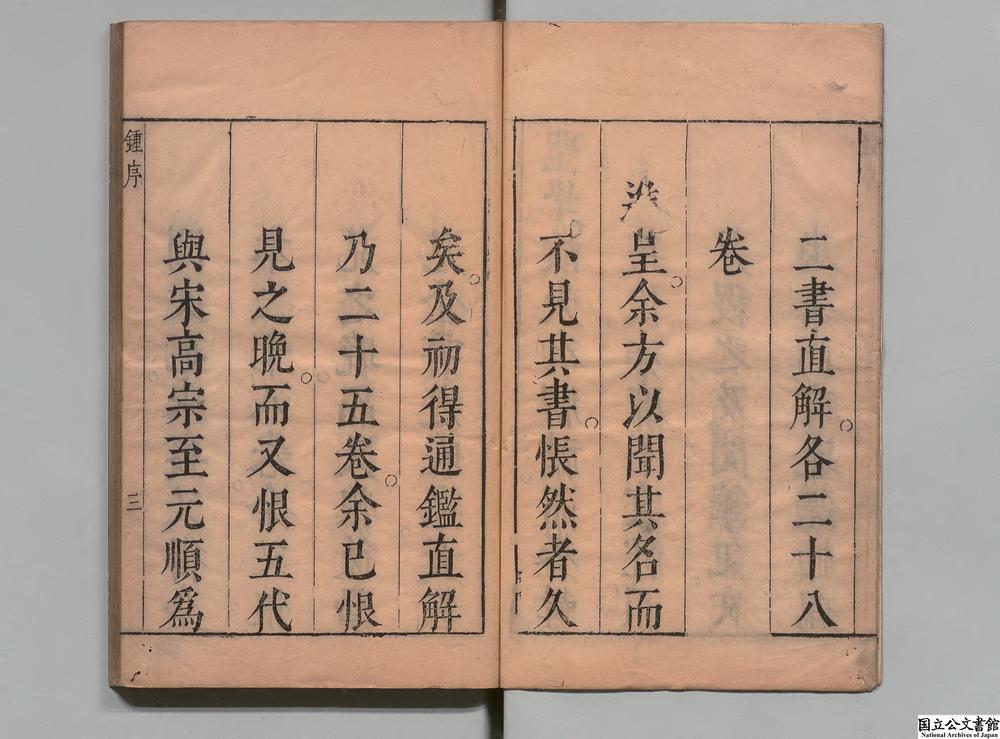 二書直解各二十八
卷
進呈余方以聞其名而
不見其書悵然者久
矣及初得通鑑直解
乃二十五卷余已恨
見之晚而又恨五代
與宋高宗至元順爲
鍾序
三
国立公文書館
National Archives of Japan